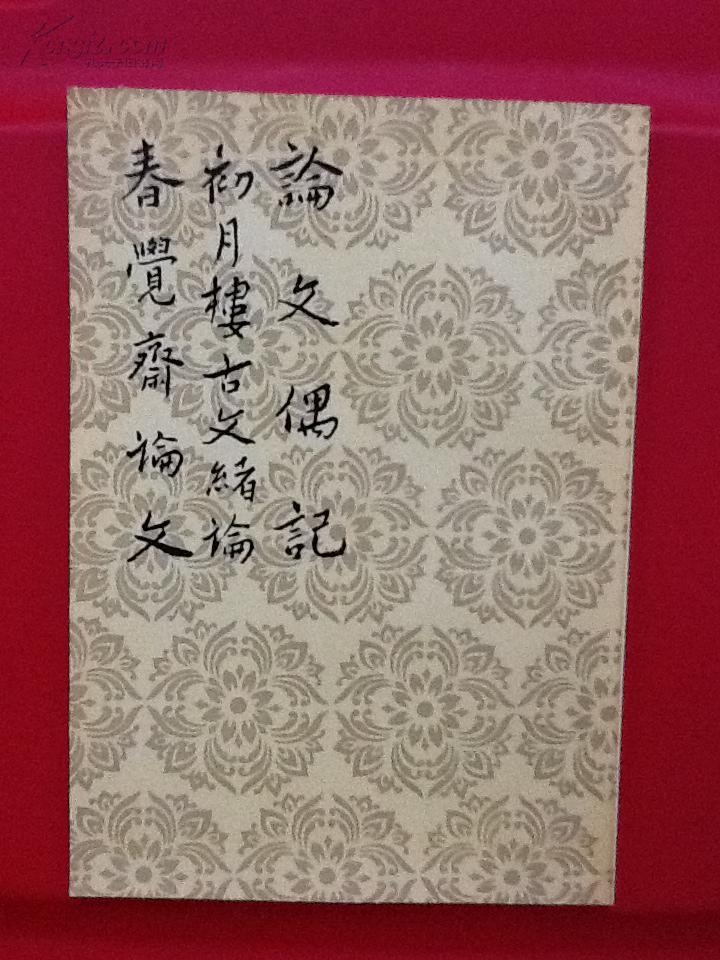 論文偶記
初月樓古文緒論
春覺齋論文
Kongfz.com